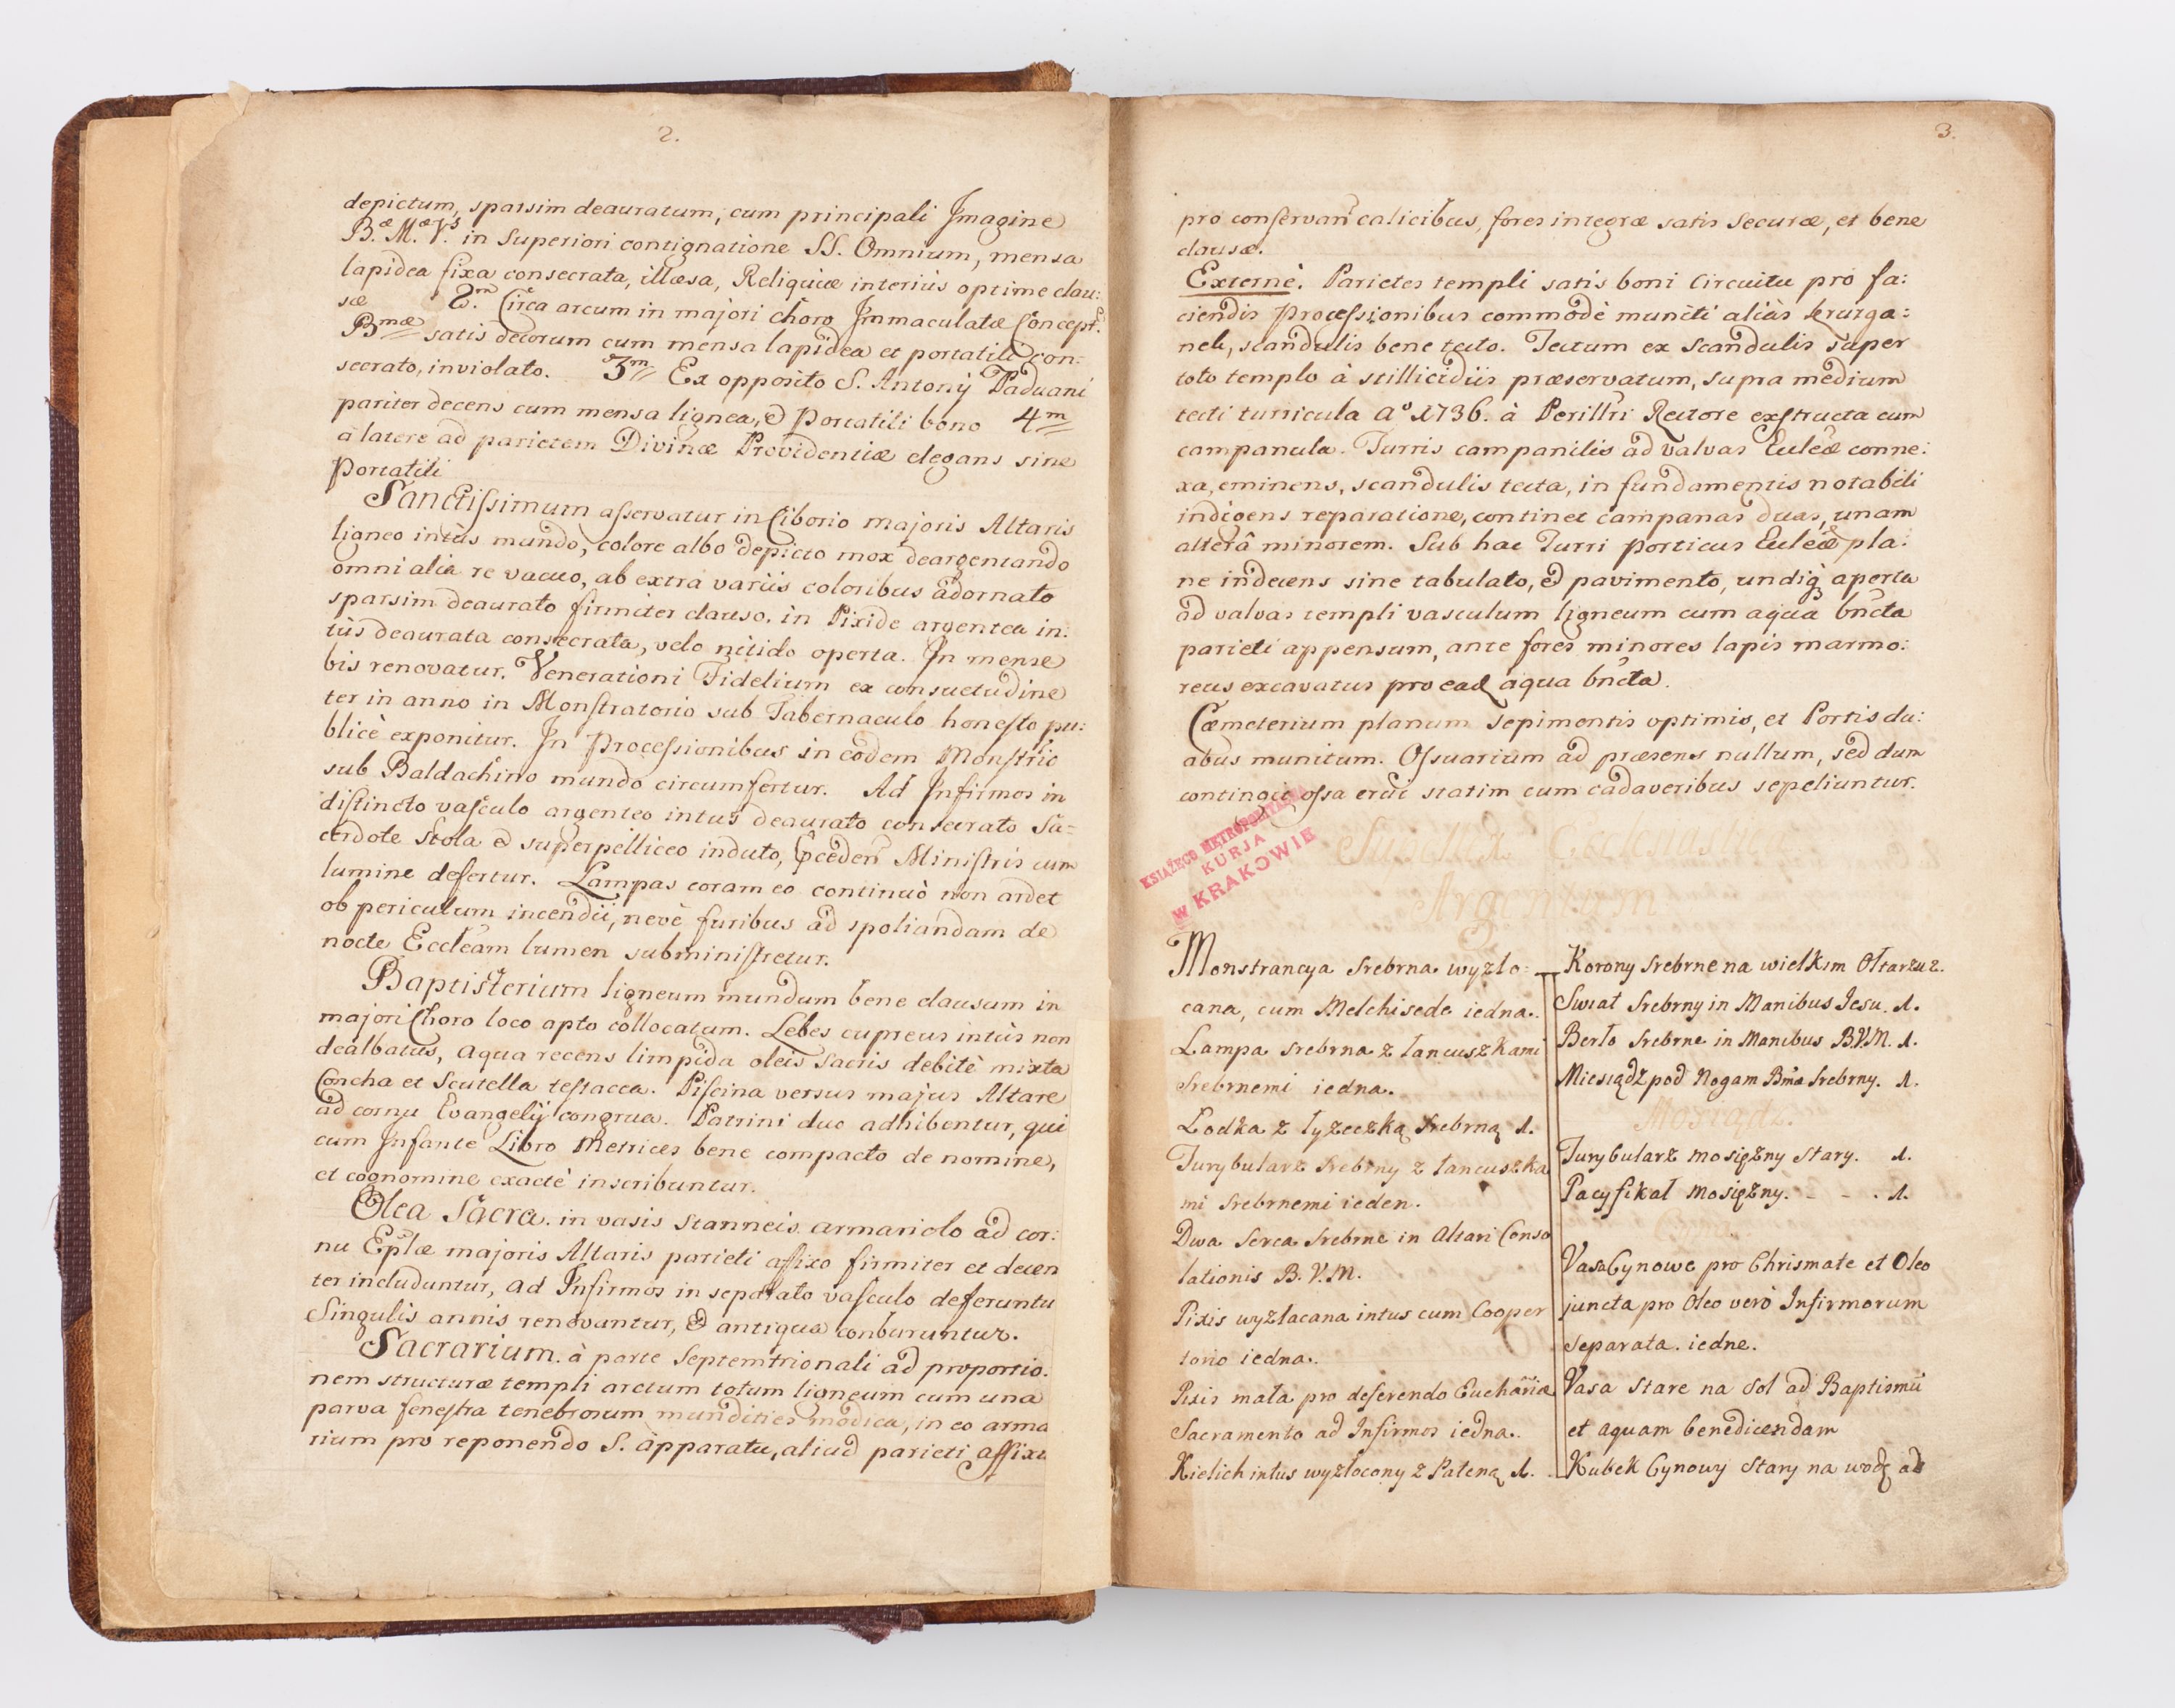 2.
depictum, sparsim deauratum, cum principali Jmagine
B.æ M.æ V.s in Superiori contignatione SS. Omnium, mensa
lapidea fixa consecrata, illæsa, Reliquiæ interiùs optime clau:
sæ 2.m Circa arcum in majori choro Jmmaculatæ Concept.
Bmæ satis decorum cum mensa lapidea et portatili con:
secrato, inviolato. 3m Ex opposito S. Antonÿ Paduani
pariter decens cum mensa lignea, & Portatili bono 4m
a latere ad parietem Divinæ Providentiæ elegans sine
Portatili
Sanctiſsimum aſservatur in Ciborio majoris Altaris
ligneo intùs mundo, colore albo depicto mox deargentando
omni alia re vacuo, ab extra variis coloribus adornato
sparsim deaurato firmiter clauso. in Pixide argentea in:
tùs deaurata consecrata, velo nitido operta. Jn mense
bis renovatur. Venerationi Fidelium ex consuetudine
ter in anno in Monſtratorio sub Tabernaculo honeſto pu:
blicè exponitur. Jn Proceſsionibus in eodem Monſtrio
sub Baldachino mundo circumfertur. Ad Jnfirmos in
diſtincto vaſculo argenteo intus deaurato consecrato Sa=
cerdote Stola & superpelliceo induto, pceden Miniſtris cum
lumine defertur. Lampas coram eo continuò non ardet
ob periculum incendii, nevè furibus ad spoliandam de
nocte Eccleam lumen subminiſtretur.
Baptisterium ligneum mundum bene clausum in
majori Choro loco apto collocatum. Lebes cupreus intùs non
dealbatus, aqua recens limpida oleis Sacris debitè mixta
Concha et Scutella teſtacea. Piſcina versus majus Altare
ad cornu Evangelÿ congrua. Patrini duo adhibentur, qui
cum Jnfante Libro Metrices bene compacto de nomine,
et cognomine exactè inscribuntur.
Olea Sacra. in vasis stanneis armariolo ad cor:
nu Eplæ majoris Altaris parieti affixo firmiter et decen
ter includuntur, ad Jnfirmos in separato vaſculo deferuntu
Singulis annis renovantur, & antiqua conburuntur.
Sacrarium. à parte Septemtrionali ad proportio.
nem structuræ templi arctum totum ligneum cum una
parva feneſtra tenebrosum mundities modica, in eo arma
rium pro reponendo S. apparatu, aliud parieti affixu
3.
pro conſervan calicibus, fores integræ satis Securæ, et bene
clausæ.
Externè. Parietes templi satis boni Circuitu pro fa:
ciendis Proceſsionibus commodè muniti aliàs kruzga:
nek, scandulis bene tecto. Tectum ex Scandulis super
toto templo à stillicidiis præservatum, supra medium
tecti turricula Aº 1736. à Perillri Rectore exſtructa cum
campanula. Turris campanilis ad valvas Eccleæ conne:
xa, eminens, scandulis tecta, in fundamentis notabili
indigens reparatione, continet campanas duas, unam
alterâ minorem. Sub hac Turri porticus Eccleæ pla:
ne indecens sine tabulato, & pavimento, undiq; aperta
ad valvas templi vasculum ligneum cum aqua bncta
parieti appensum, ante fores minores lapis marmo:
reus excavatus pro ead aqua bncta.
Cæmeterium planum Sepimentis optimis, et Portis du:
abus munitum. Oſsuarium ad præsens nullum, sed dum
contingit oſsa erui statim cum cadaveribus sepeliuntur.
KSIĄŻĘCO METROPOLITALNA
KURJA
W KRAKOWIE
Argentum
Monstrancya Srebrna wyzło:
cana, cum Melchisede iedna.
Lampa Srebrna z łancuszkami
Srebrnemi iedna.
Lodka z łyzeczką Srebrną 1.
Turybularz Srebrny z łancuszka
mi Srebrnemi ieden.
Dwa Serca Srebrne in Altari Conso
lationis B. V. M.
Pixis wyzłacana intus cum Cooper
torio iedna.
Pixis mała pro deferendo Euchariæ
Sacramento ad Infirmos iedna.
Kielich intus wyzłocony z Pateną 1.
Korony Srebrne na wielkim Ołtarzu 2.
Swiat Srebrny in Manibus Jesu. 1.
Berło Srebrne in Manibus B.V.M. 1.
Miesiądz pod Nogam Bmæ Srebrny. 1.
Mosiądz.
Turybularz mosiężny Stary. 1.
Pacyfikał mosiężny. - - . 1.
Cyna
Vasa Cynowe pro Chrismate et Oleo
juncta pro Oleo verò Infirmorum
Separata. iedne.
Vasa Stare na Sol ad Baptismū
et aquam benedicendam
Kubek Cynowy Stary na wodę ad